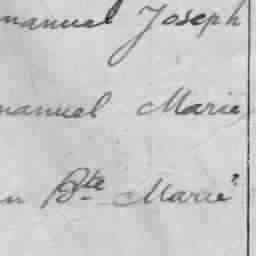 manuel Joseph
manuel Marie
n Bte Marie